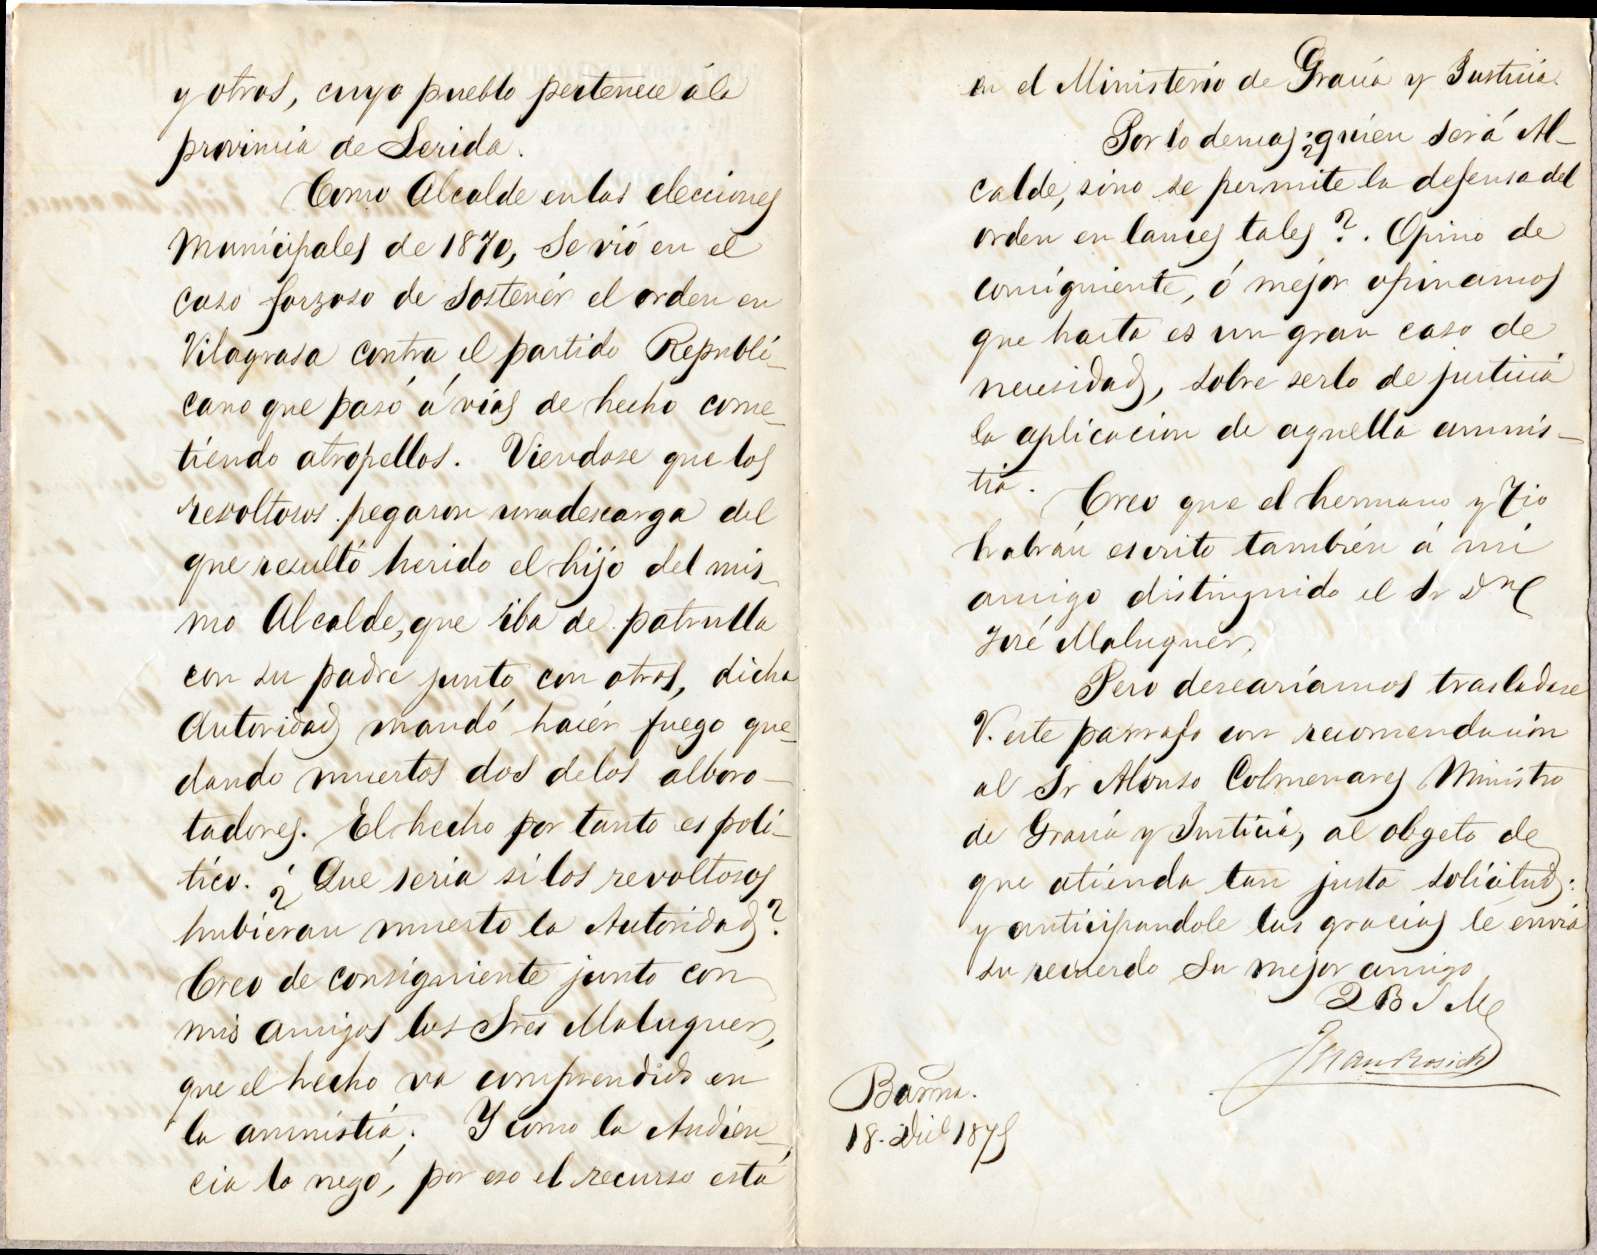 y otros, cuyo pueblo pertenece á la
provincia de Lerida.
Como Alcalde en las elecciones
Municipales de 1870, Se vió en el
caso forzoso de Sostener el orden en
Vilagrasa contra el partido Republi-
cano que pasó á vias de hecho come-
tiendo atropellos. Viendose que los
revoltosos pegaron una descarga del
que resultó herido el hijo del mis-
mo Alcalde, que iba de patrulla
con su padre junto con otros, dicha
Autoridad mandó hacer fuego que-
dando muertos dos de los alboro-
tadores. El hecho por tanto es poli-
tico. ¿Que seria si los revoltosos
hubieran muerto la Autoridad?
Creo de consiguiente junto con
mis amigos los Sres Maluquer,
que el hecho va comprendido en
la amnistia. Y como la Audien-
cia lo negó, por eso el recurso está
en el Ministerio de Gracia y Justicia.
Por lo demas ¿quien será Al-
calde, sino se permite la defensa del
orden en lances tales?. Opino de
consiguiente, ó mejor opinamos
que hasta es un gran caso de
necesidad, sobre serlo de justicia
la aplicacion de aquella amnis-
tia.
Creo que el hermano y Tio
habrán escrito también á mi
amigo distinguido el Sr Dn
José Maluquer,
Pero desearíamos trasladase
V. este parrafo con recomendacion
al Sr Alonso Colmenares Ministro
de Gracia y Justicia, al obgeto de
que atienda tan justa solicitud:
y anticipandole las gracias le envia
su recuerdo Su mejor amigo
Q B S M
Juan Rosich
Barna.
18. Dice 1875